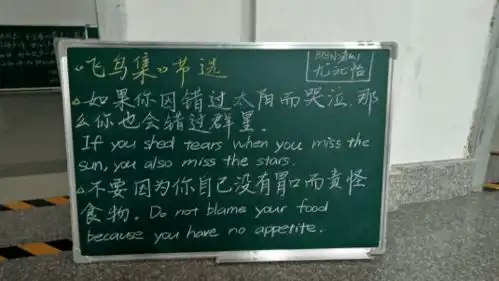 《飞鸟集》节选
如果你因错过太阳而哭泣，那
么你也会错过群星。
If you shed tears when you miss the
sun, you also miss the stars.
不要因为你自己没有胃口而责怪
食物。Do not blame your food
because you have no appetite.